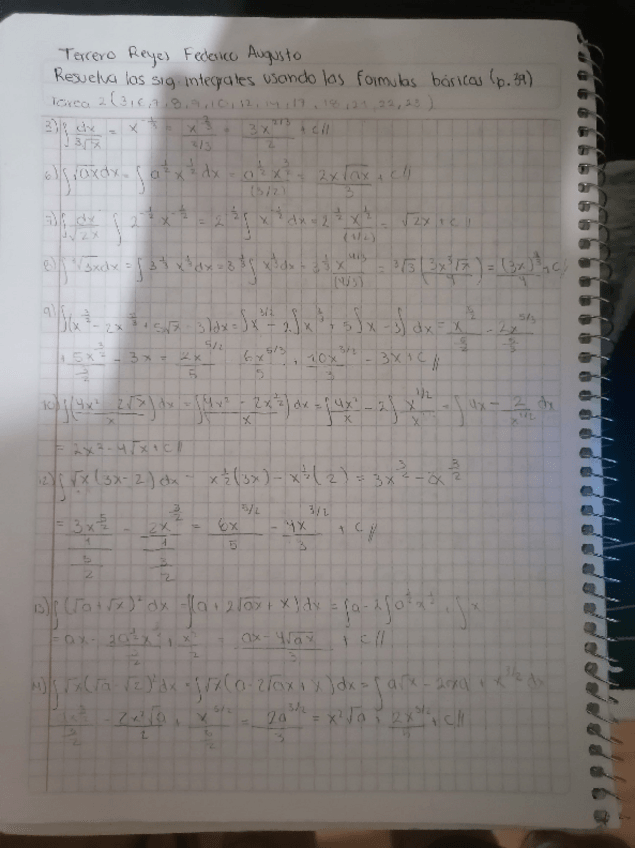 Tercero Reyes Federico Augusto
Resuelva las sig. integrales usando las formulas básicas (p. 39)
Tarea 2 (3, 6, 7, 8, 9, 10, 12, 14, 17, 18, 21, 22, 23)
3) ∫ dx/∛x = x^(-1/3) = x^(2/3)/(2/3) = 3x^(2/3)/2 + C//
6) ∫ √ax dx = ∫ a^(1/2) x^(1/2) dx = a^(1/2) x^(3/2)/(3/2) = 2x√ax/3 + C//
7) ∫ dx/√2x ∫ 2^(-1/2) x^(-1/2) = 2^(-1/2) ∫ x^(-1/2) dx = 2^(-1/2) x^(1/2)/(1/2) = √2x + C//
8) ∫ ∛3x dx = ∫ 3^(1/3) x^(1/3) dx = 3^(1/3) ∫ x^(1/3) dx = 3^(1/3) x^(4/3)/(4/3) = ∛3 (3x ∛x/4) = (3x)^(4/3)/4 + C//
9) ∫ (x^(3/2) - 2x^(2/3) + 5√x - 3) dx = ∫ x^(3/2) - 2∫ x^(2/3) + 5∫ x - 3∫ dx = x^(5/2)/(5/2) - 2x^(5/3)/(5/3)
+ 5x^(3/2)/(3/2) - 3x = 2x^(5/2)/5 6x^(5/3)/5 + 10x^(3/2)/3 - 3x + C//
10) ∫ (4x² - 2√x)/x dx = ∫ (4x² - 2x^(1/2))/x dx = ∫ 4x²/x - 2∫ x^(1/2)/x = ∫ 4x - 2/x^(1/2) dx
= 2x² - 4√x + C//
12) ∫ √x (3x - 2) dx = x^(1/2) (3x) - x^(1/2) (2) = 3x^(3/2)
= 3x^(5/2)/(5/2) - 2x^(3/2)/(3/2) = 6x^(5/2)/5 - 4x^(3/2)/3 + C//
13) ∫ (√a + √x)² dx = ∫ (a + 2√ax + x) dx = ∫ a - 2∫ a^(1/2) x^(1/2) + ∫ x
= ax - ax - 4√ax/3 + C//
14) ∫ √x (√a - √2)² dx = ∫ √x (a - 2√ax + x) dx = ∫ a√x - 2x√a + x^(3/2) dx
- 2x²√a/2 + x^(5/2)/(5/2) = 2a^(3/2)/3 = x²√a + 2x^(5/2)/5 + C//